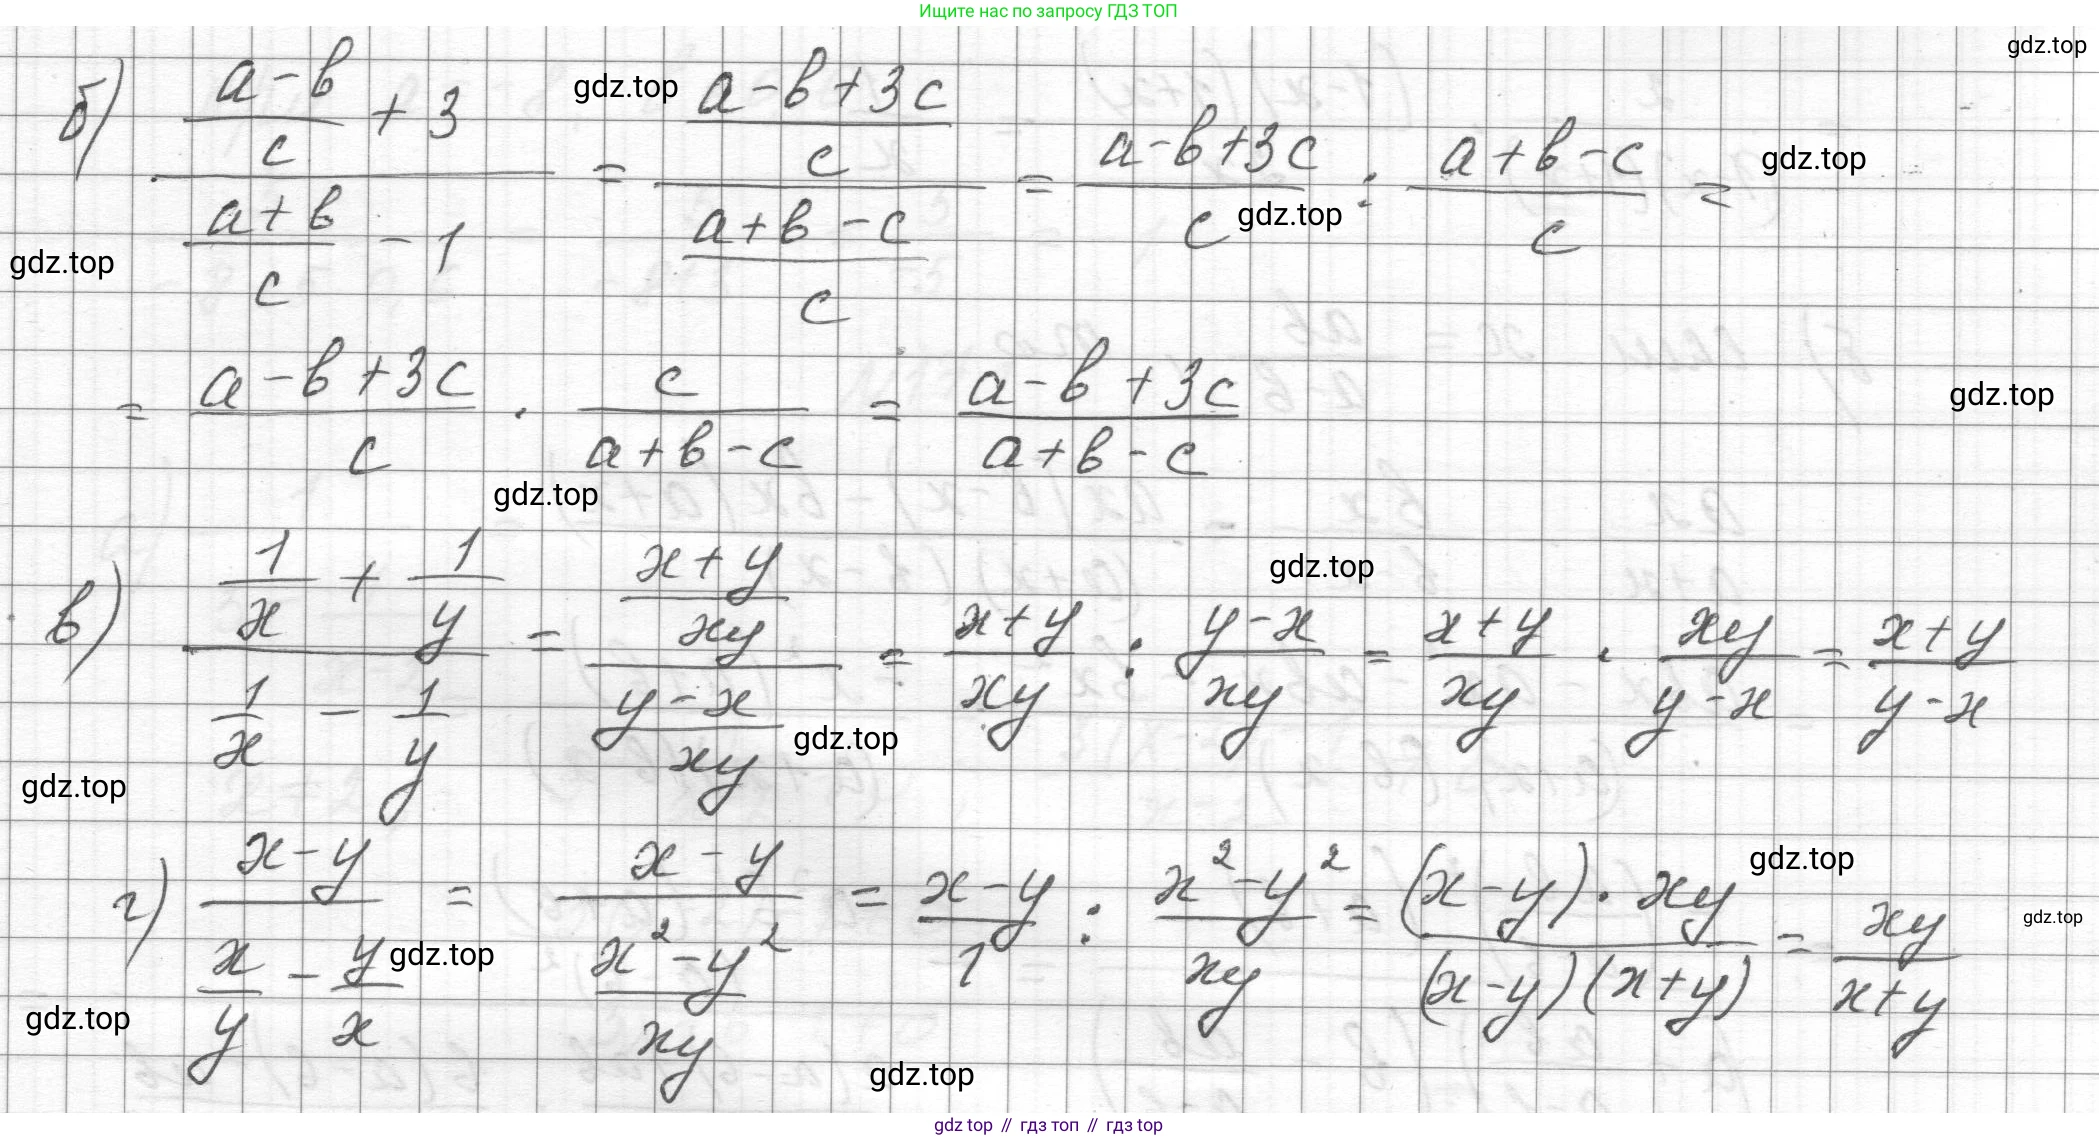 Ищите нас по запросу ГДЗ ТОП
gdz.top
б) ((a-b)/c + 3)/((a+b)/c - 1) = ((a-b+3c)/c)/((a+b-c)/c) = (a-b+3c)/c : (a+b-c)/c =
gdz.top
gdz.top
gdz.top
gdz.top
= (a-b+3c)/c · c/(a+b-c) = (a-b+3c)/(a+b-c)
gdz.top
gdz.top
в) (1/x + 1/y)/(1/x - 1/y) = ((x+y)/xy)/((y-x)/xy) = (x+y)/xy : (y-x)/xy = (x+y)/xy · xy/(y-x) = (x+y)/(y-x)
gdz.top
gdz.top
gdz.top
г) (x-y)/(x/y - y/x) = (x-y)/((x²-y²)/xy) = (x-y)/1 : (x²-y²)/xy = ((x-y)·xy)/((x-y)(x+y)) = xy/(x+y)
gdz.top
gdz.top
gdz.top
gdz.top
gdz.top
gdz top // гдз топ // гдз top